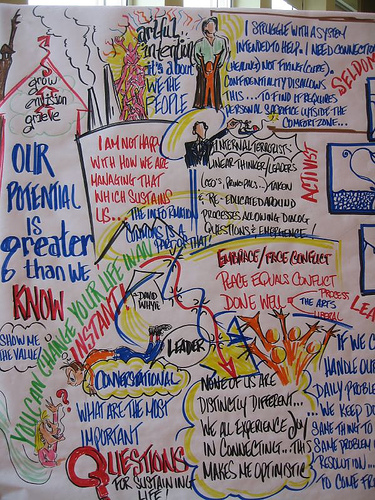 artful
intention
it's about
WE THE
PEOPLE
I STRUGGLE WITH A SYSTEM
INTENDED TO HELP. I NEED CONNECTION
(HEALING) NOT FIXING (CURE).
CONFIDENTIALITY DISALLOWS
THIS... TO FIND IT REQUIRES
PERSONAL SACRIFICE OUTSIDE THE
COMFORT ZONE...
SELDOM
grow
OUR
POTENTIAL
IS
greater
than WE
KNOW
I AM NOT HAPPY
WITH HOW WE ARE
MANAGING THAT
WHICH SUSTAINS
US...
THE INFORMATION
COMMONS IS A
PART OF THAT!
INTERNAL TERRORISTS
LINEAR THINKER/LEADERS
(CEO'S, PRINCIPALS...) TAKEN
& RE-EDUCATED AROUND
PROCESSES ALLOWING DIALOG
QUESTIONS & EMERGENCE!
ACTIVIST
EMBRACE/FACE CONFLICT
PEACE EQUALS CONFLICT
DONE WELL
PROCESS
THE ARTS
LIBERAL
YOU CAN CHANGE YOUR LIFE IN AN
INSTANT!
DAVID
WHYTE
SHOW ME
THE VALUE!
LEADER
CONVERSATIONAL
WHAT ARE THE MOST
IMPORTANT
QUESTIONS
FOR SUSTAINING
LIFE!
NONE OF US ARE
DISTINCTLY DIFFERENT...
WE ALL EXPERIENCE JOY
IN CONNECTING... THIS
MAKES ME OPTIMISTIC
LEA
IF WE C
HANDLE OUR
DAILY PROBLE
WE KEEP DO
SAME THING TO
SAME PROBLEM
RESOLUTION...
TO COME FR